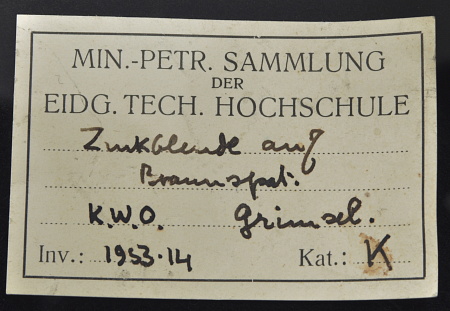 MIN.-PETR. SAMMLUNG
DER
EIDG. TECH. HOCHSCHULE
Zinkblende auf
Braunspat.
K.W.O. Grimsel.
Inv.: 1953.14 Kat.: K